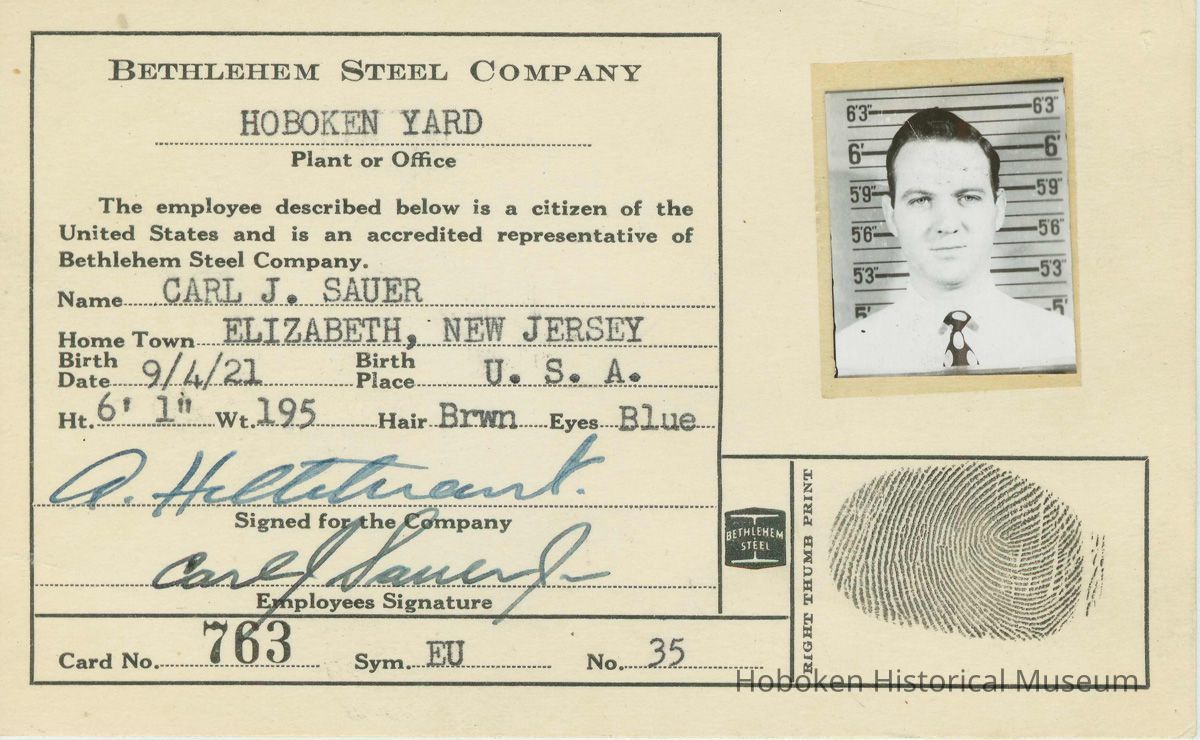 BETHLEHEM STEEL COMPANY
HOBOKEN YARD
Plant or Office
The employee described below is a citizen of the
United States and is an accredited representative of
Bethlehem Steel Company.
Name CARL J. SAUER
Home Town ELIZABETH, NEW JERSEY
Birth Date 9/4/21 Birth Place U. S. A.
Ht. 6' 1" Wt. 195 Hair Brwn Eyes Blue
A.
Signed for the Company
Carl J Sauer Jr
Employees Signature
Card No. 763 Sym. EU No. 35
6'3" 6'3"
6' 6'
5'9" 5'9"
5'6" 5'6"
5'3" 5'3"
5' 5'
BETHLEHEM
STEEL
RIGHT THUMB PRINT
Hoboken Historical Museum